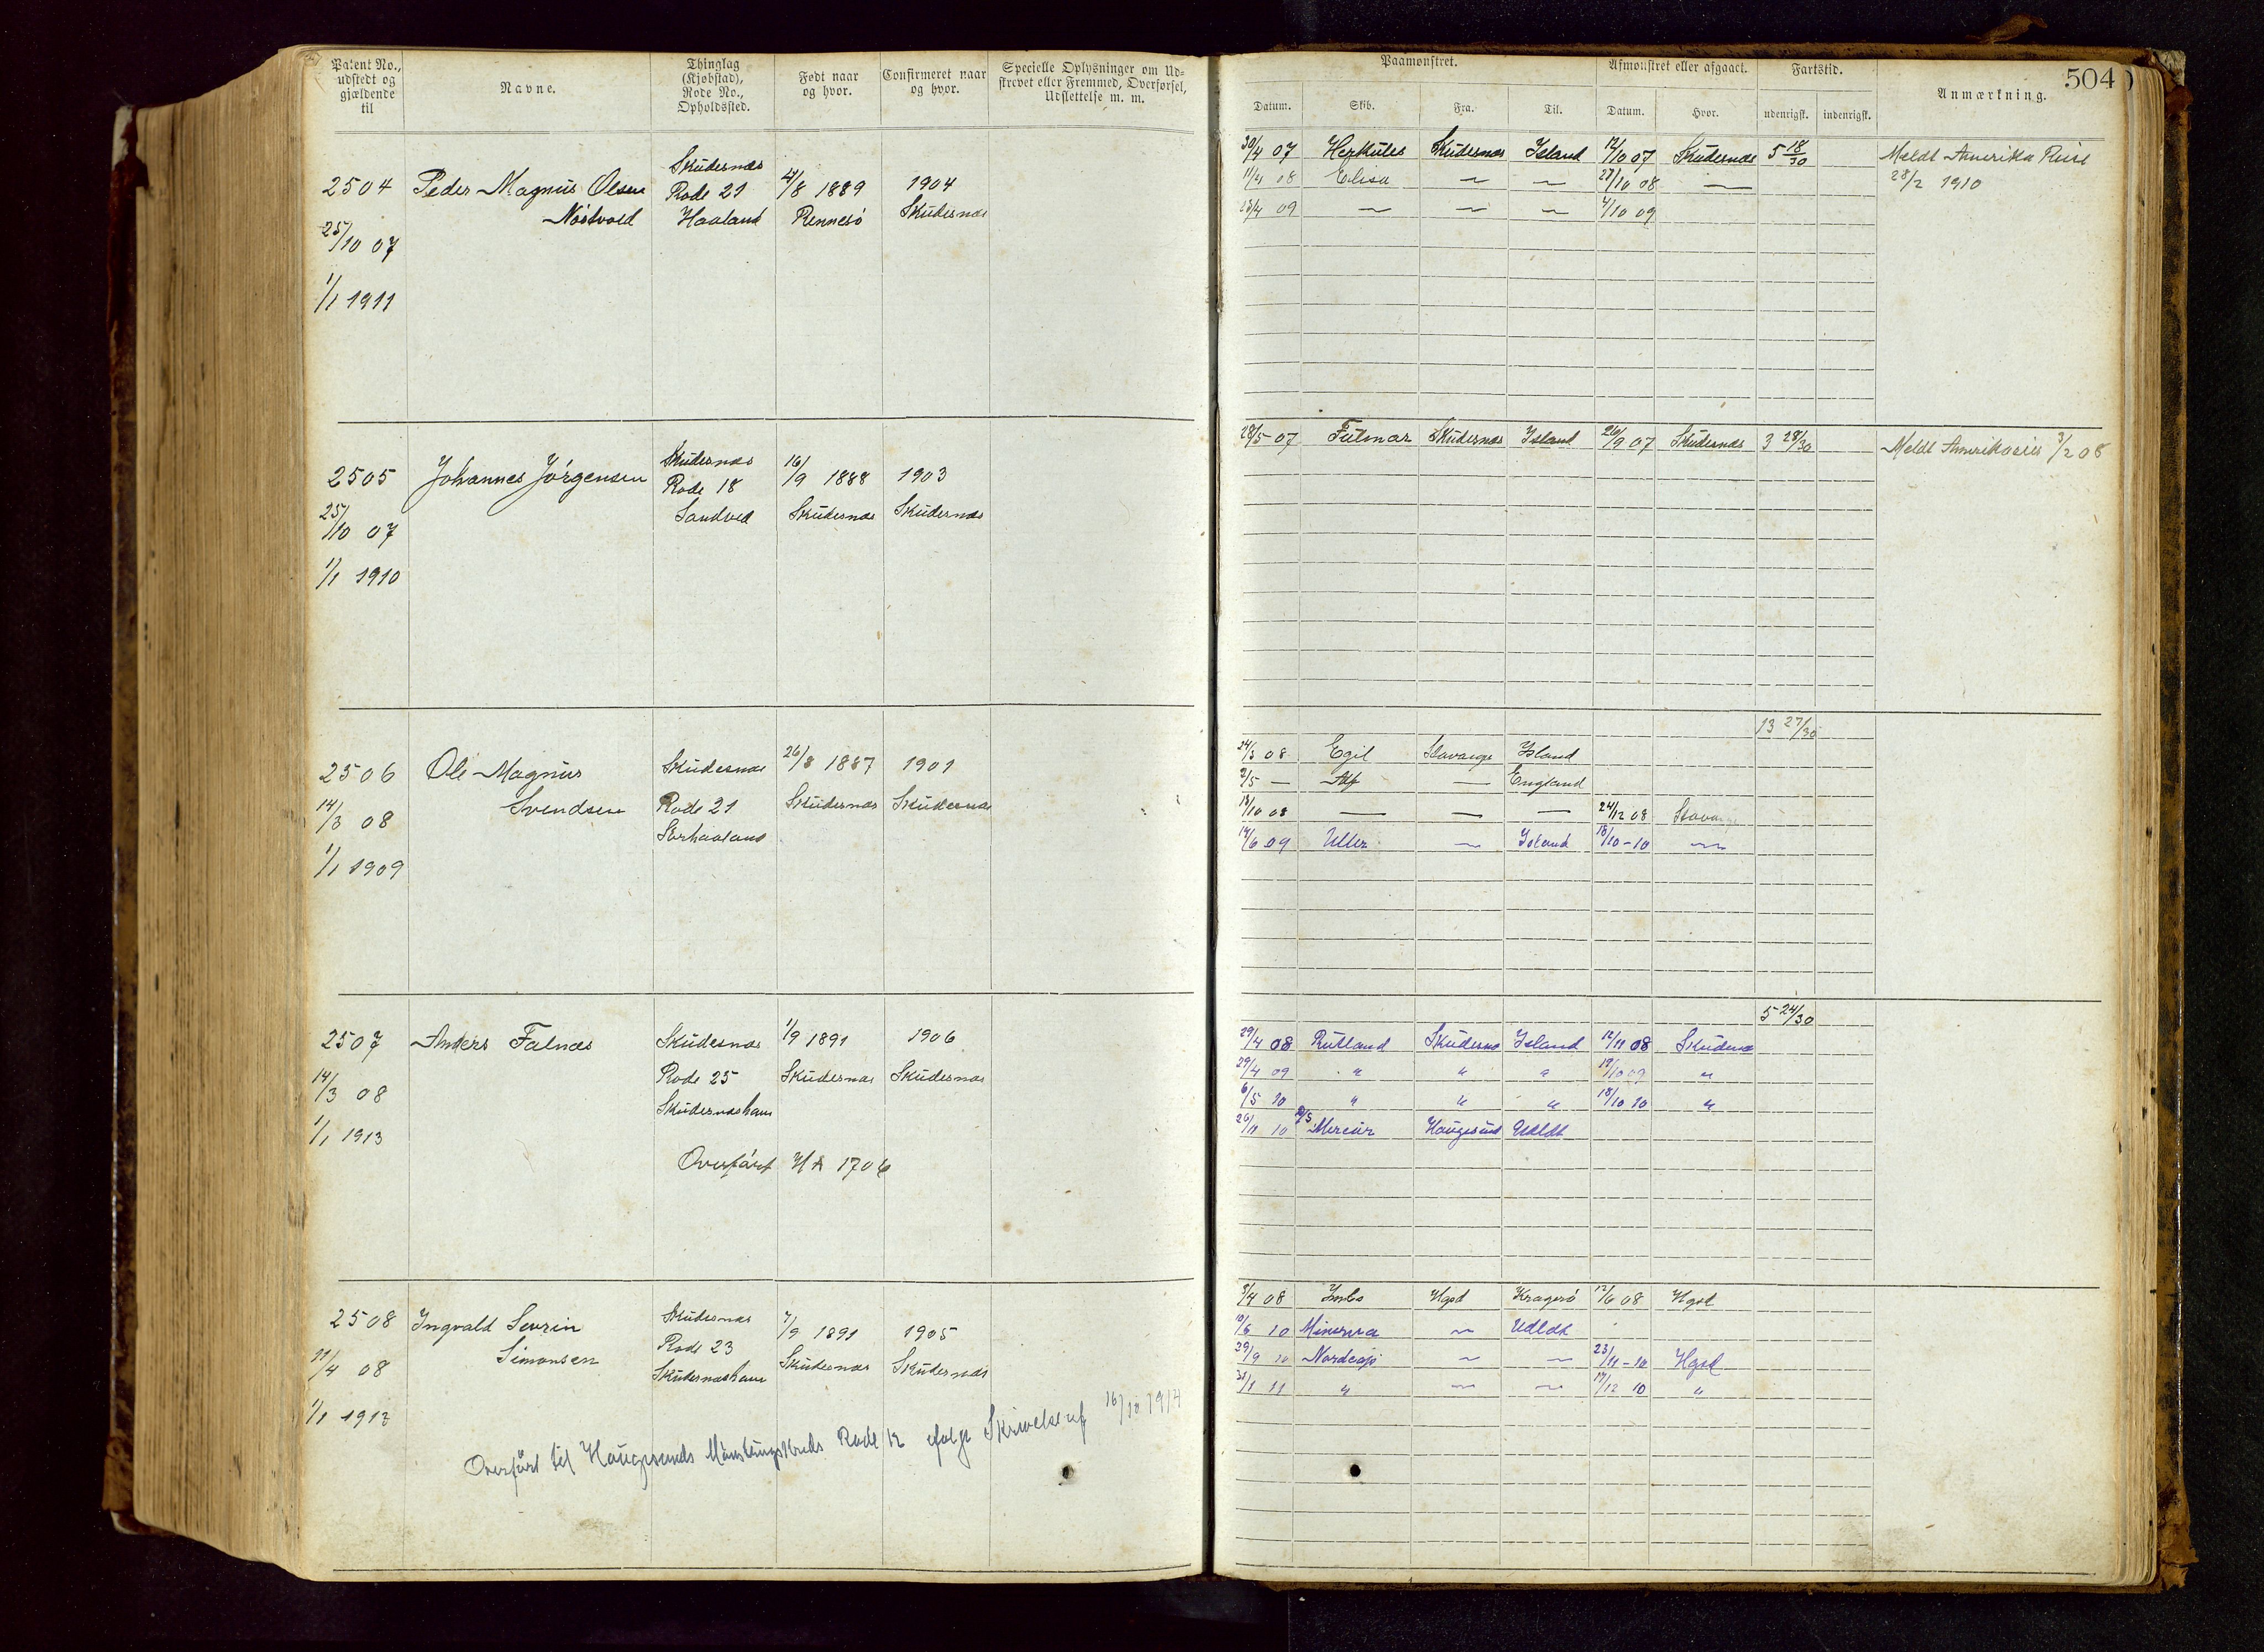 Patent No., udstedt og gjældende til
Navne.
Thinglag (Kjøbstad), Rode No., Opholdssted.
Født naar og hvor.
Confirmeret naar og hvor.
Specielle Oplysninger om Udskrevet eller Fremmed, Overførsel, Udslettelse m. m.
2504 Peder Magnus Olsen
Nöstvold
Skudesnæs
Rode 21
Haaland
/8 1889
Rennesö
1904
Skudesnæs
25/10 07
1/1 1911
2505 Johannes Jörgensen
Skudesnæs
Rode 18
Sandved
16/9 1888
Skudesnæs
1903
Skudesnæs
25/10 07
1/1 1910
2506 Ole Magnus
Svendsen
Skudesnæs
Rode 21
Sörhaaland
26/8 1887
Skudesnæs
1901
Skudesnæs
14/3 08
1/1 1909
2507 Anders Falnæs
Skudesnæs
Rode 25
Skudesnæshavn
1/9 1891
Skudesnæs
1906
Skudesnæs
14/3 08
1/1 1913
Overført H A 1706
2508 Ingvald Sevrin
Simonsen
Skudesnæs
Rode 23
Skudesnæshavn
7/9 1891
Skudesnæs
1905
Skudesnæs
11/4 08
1/1 1913
Overført til Haugesunds Mönstringskreds Rode 12 ifølge Skrivelse af 16/10 1914
504
Paamønstret.
Afmønstret eller afgaaet.
Fartstid.
Anmærkning.
Datum. Skib. Fra. Til. Datum. Hvor. udenrigsk. indenrigsk.
30/4 07 Herkules Skudesnæs Island 12/10 07 Skudesnæs 5 18/30 Meldt Amerika Reise
11/4 08 Elisa — — 27/10 08 — 28/2 1910
23/4 09 — — — 4/10 09
28/5 07 Fulmar Skudesnæs Island 26/9 07 Skudesnæs 3 28/30 Meldt Amerikareis 3/2 08
13 27/30
24/3 08 Egil Stavanger Island
2/5 — Alf — England
13/10 08 — — — 24/12 08
14/6 09 Uller — Island 18/10-10 —
5 24/30
29/4 08 Rutland Skudesnæs Island 12/11 08 Skudesnæs
29/4 09 " " " 19/10 09 "
6/5 10 " " " 18/10 10 "
26/11 10 D/S Mercur Haugesund Udldt
3/4 08 Hgsd Kragerö 12/6 08 Hgsd
10/6 10 Minerva — Udldt
29/9 10 Nordcap — — 23/11-10 Hgsd
31/1 11 " — — 17/12 10 "